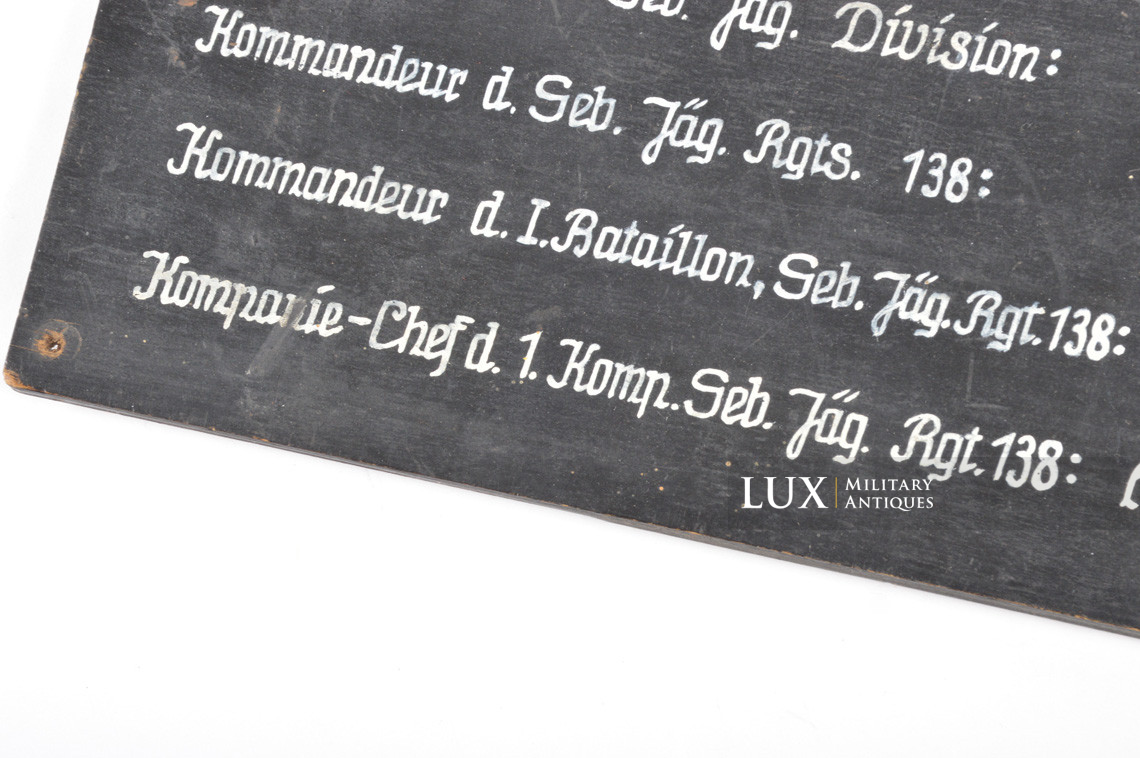 Seb. Jäg. Division:
Kommandeur d. Seb. Jäg. Rgts. 138:
Kommandeur d. I. Bataillon, Seb. Jäg. Rgt. 138:
Kompanie-Chef d. 1. Komp. Seb. Jäg. Rgt. 138:
LUX MILITARY ANTIQUES